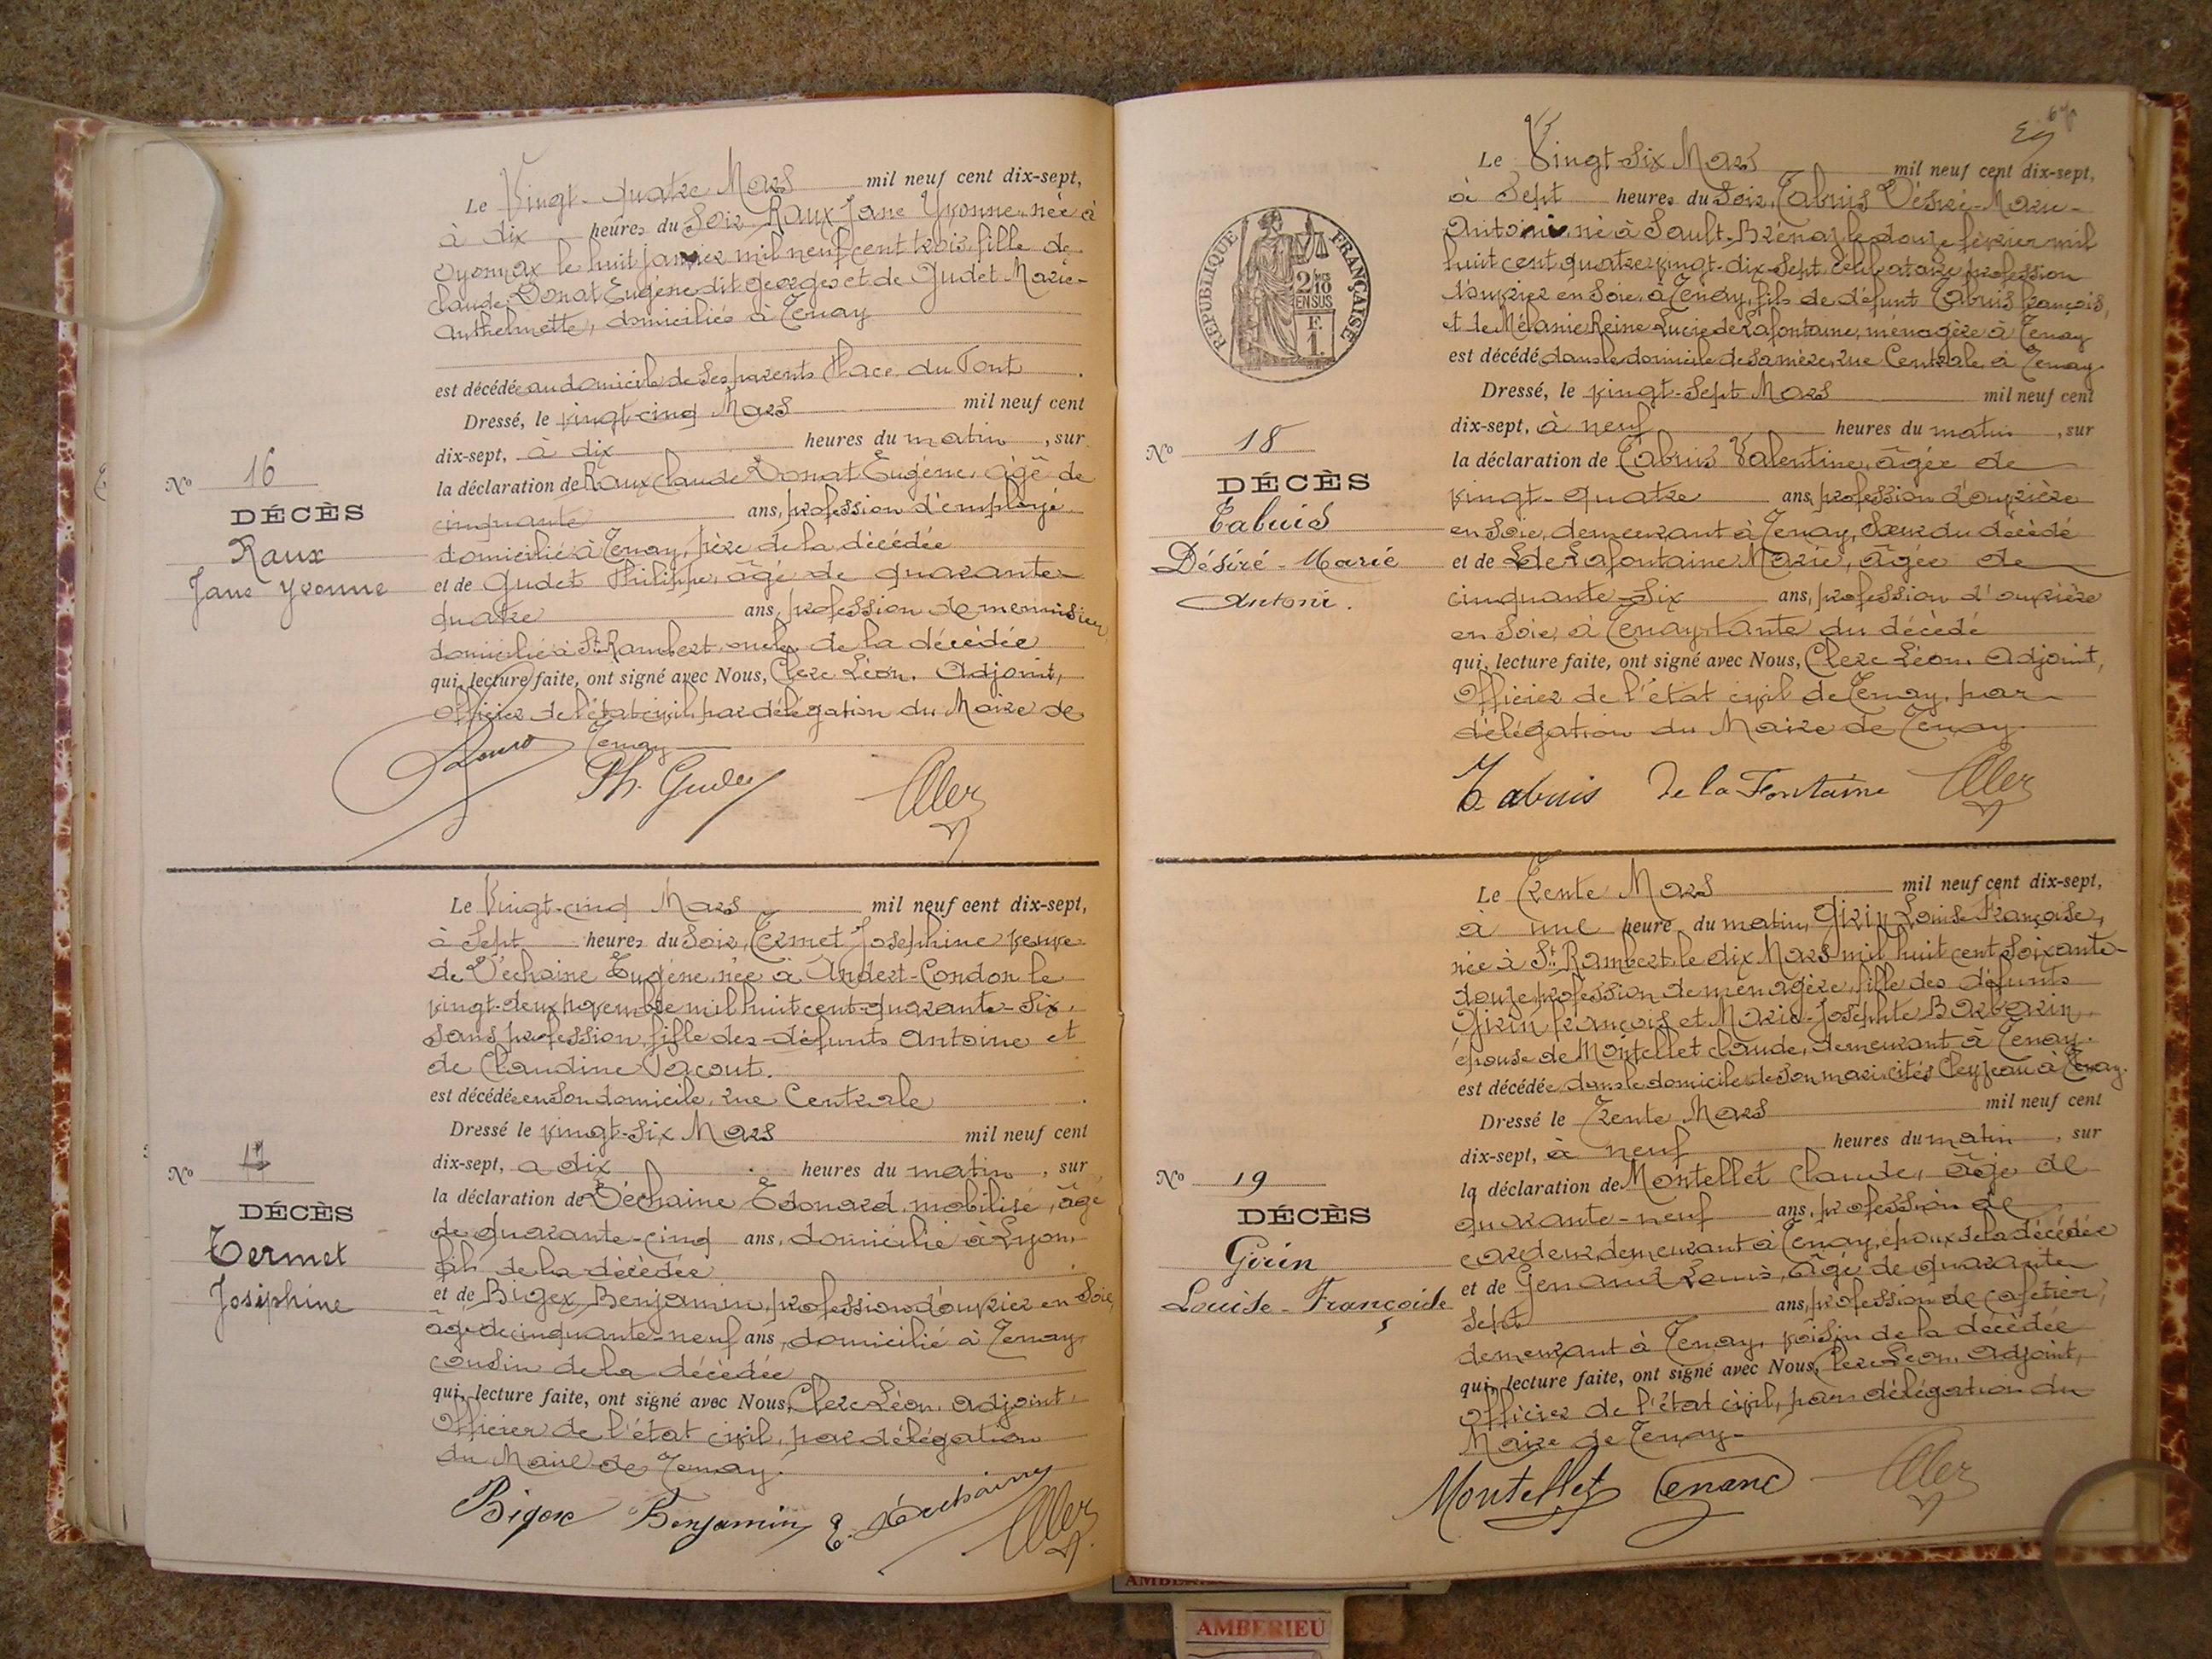 Le Vingt-quatre Mars mil neuf cent dix-sept,
à dix heures du Soir, Raux Jane Yvonne, née à
Oyonnax le huit janvier mil neuf cent trois, fille de
Claude Donat Eugène dit Georges et de Gudet Marie-
Anthelmette, domiciliés à Tenay
est décédée au domicile de ses parents Place du Pont
Dressé, le vingt-cinq Mars mil neuf cent
dix-sept, à dix heures du matin, sur
la déclaration de Raux Claude Donat Eugène, âgé de
cinquante ans, profession d'employé
domicilié à Tenay, père de la décédée
et de Gudet Philippe, âgé de quarante-
quatre ans, profession de menuisier
domicilié à St Rambert, oncle de la décédée
qui, lecture faite, ont signé avec Nous, Clerc Léon, Adjoint,
Officier de l'état civil, par délégation du Maire de
Tenay
No 16
DÉCÈS
Raux
Jane Yvonne
Ph. Gudet
Le Vingt-cinq Mars mil neuf cent dix-sept,
à Sept heures du Soir, Termet Josephine veuve
de Déchaine Eugène, née à Andert-Condon le
vingt-deux novembre mil huit cent quarante-six,
sans profession, fille des défunts Antoine et
de Claudine
est décédée en son domicile, rue Centrale
Dressé le vingt-six Mars mil neuf cent
dix-sept, a dix heures du matin, sur
la déclaration de Déchaine Edouard, mobilisé, âgé
de quarante-cinq ans, domicilié à Lyon,
fils de la décédée
et de Bigex Benjamin, profession d'ouvrier en Soie,
âgé de cinquante-neuf ans, domicilié à Tenay,
cousin de la décédée
qui, lecture faite, ont signé avec Nous, Clerc Léon, Adjoint,
Officier de l'état civil, par délégation
du Maire de Tenay.
No 17
DÉCÈS
Termet
Joséphine
Bigex Benjamin E. Déchaine
RÉPUBLIQUE FRANÇAISE
2/10
EN SUS
F.
1.
Le Vingt-Six Mars mil neuf cent dix-sept,
à Sept heures du Soir, Tabuis Désiré-Marie-
Antoni né à Sault-Brénaz le douze février mil
huit cent quatre vingt-dix-sept, célibataire, profession
d'ouvrier en Soie, à Tenay, fils de défunt Tabuis François,
et de Mélanie Reine Lucie de Lafontaine, ménagère à Tenay
est décédé dans le domicile de sa mère, rue Centrale, à Tenay
Dressé, le vingt-Sept Mars mil neuf cent
dix-sept, à neuf heures du matin, sur
la déclaration de Tabuis Valentine, âgée de
vingt-quatre ans, profession d'ouvrière
en Soie, demeurant à Tenay, Sœur du décédé
et de de Lafontaine Marie, âgée de
cinquante-Six ans, profession d'ouvrière
en Soie, à Tenay, tante du décédé
qui, lecture faite, ont signé avec Nous, Clerc Léon, Adjoint,
Officier de l'état civil de Tenay, par
délégation du Maire de Tenay.
No 18
DÉCÈS
Tabuis
Désiré-Marie
Antoni.
Tabuis De la Fontaine
Le Trente Mars mil neuf cent dix-sept,
à une heure du matin, Girin Louise Françoise,
née à St Rambert, le dix Mars mil huit cent Soixante-
douze, profession de ménagère, fille des défunts
Girin François et Marie-Josephte Barbarin,
épouse de Montellet Claude, demeurant à Tenay.
est décédée dans le domicile de Son mari, cités à Tenay.
Dressé le Trente Mars mil neuf cent
dix-sept, à neuf heures du matin, sur
la déclaration de Montellet Claude, âgé de
quarante-neuf ans, profession de
cardeur, demeurant à Tenay, époux de la décédée
et de Genand Louis, âgé de quarante
Sept ans, profession de cafetier,
demeurant à Tenay, voisin de la décédée
qui, lecture faite, ont signé avec Nous, Clerc Léon, Adjoint,
Officier de l'état civil, par délégation du
Maire de Tenay.
No 19
DÉCÈS
Girin
Louise-Françoise
Montellet Genand
AMBERIEU